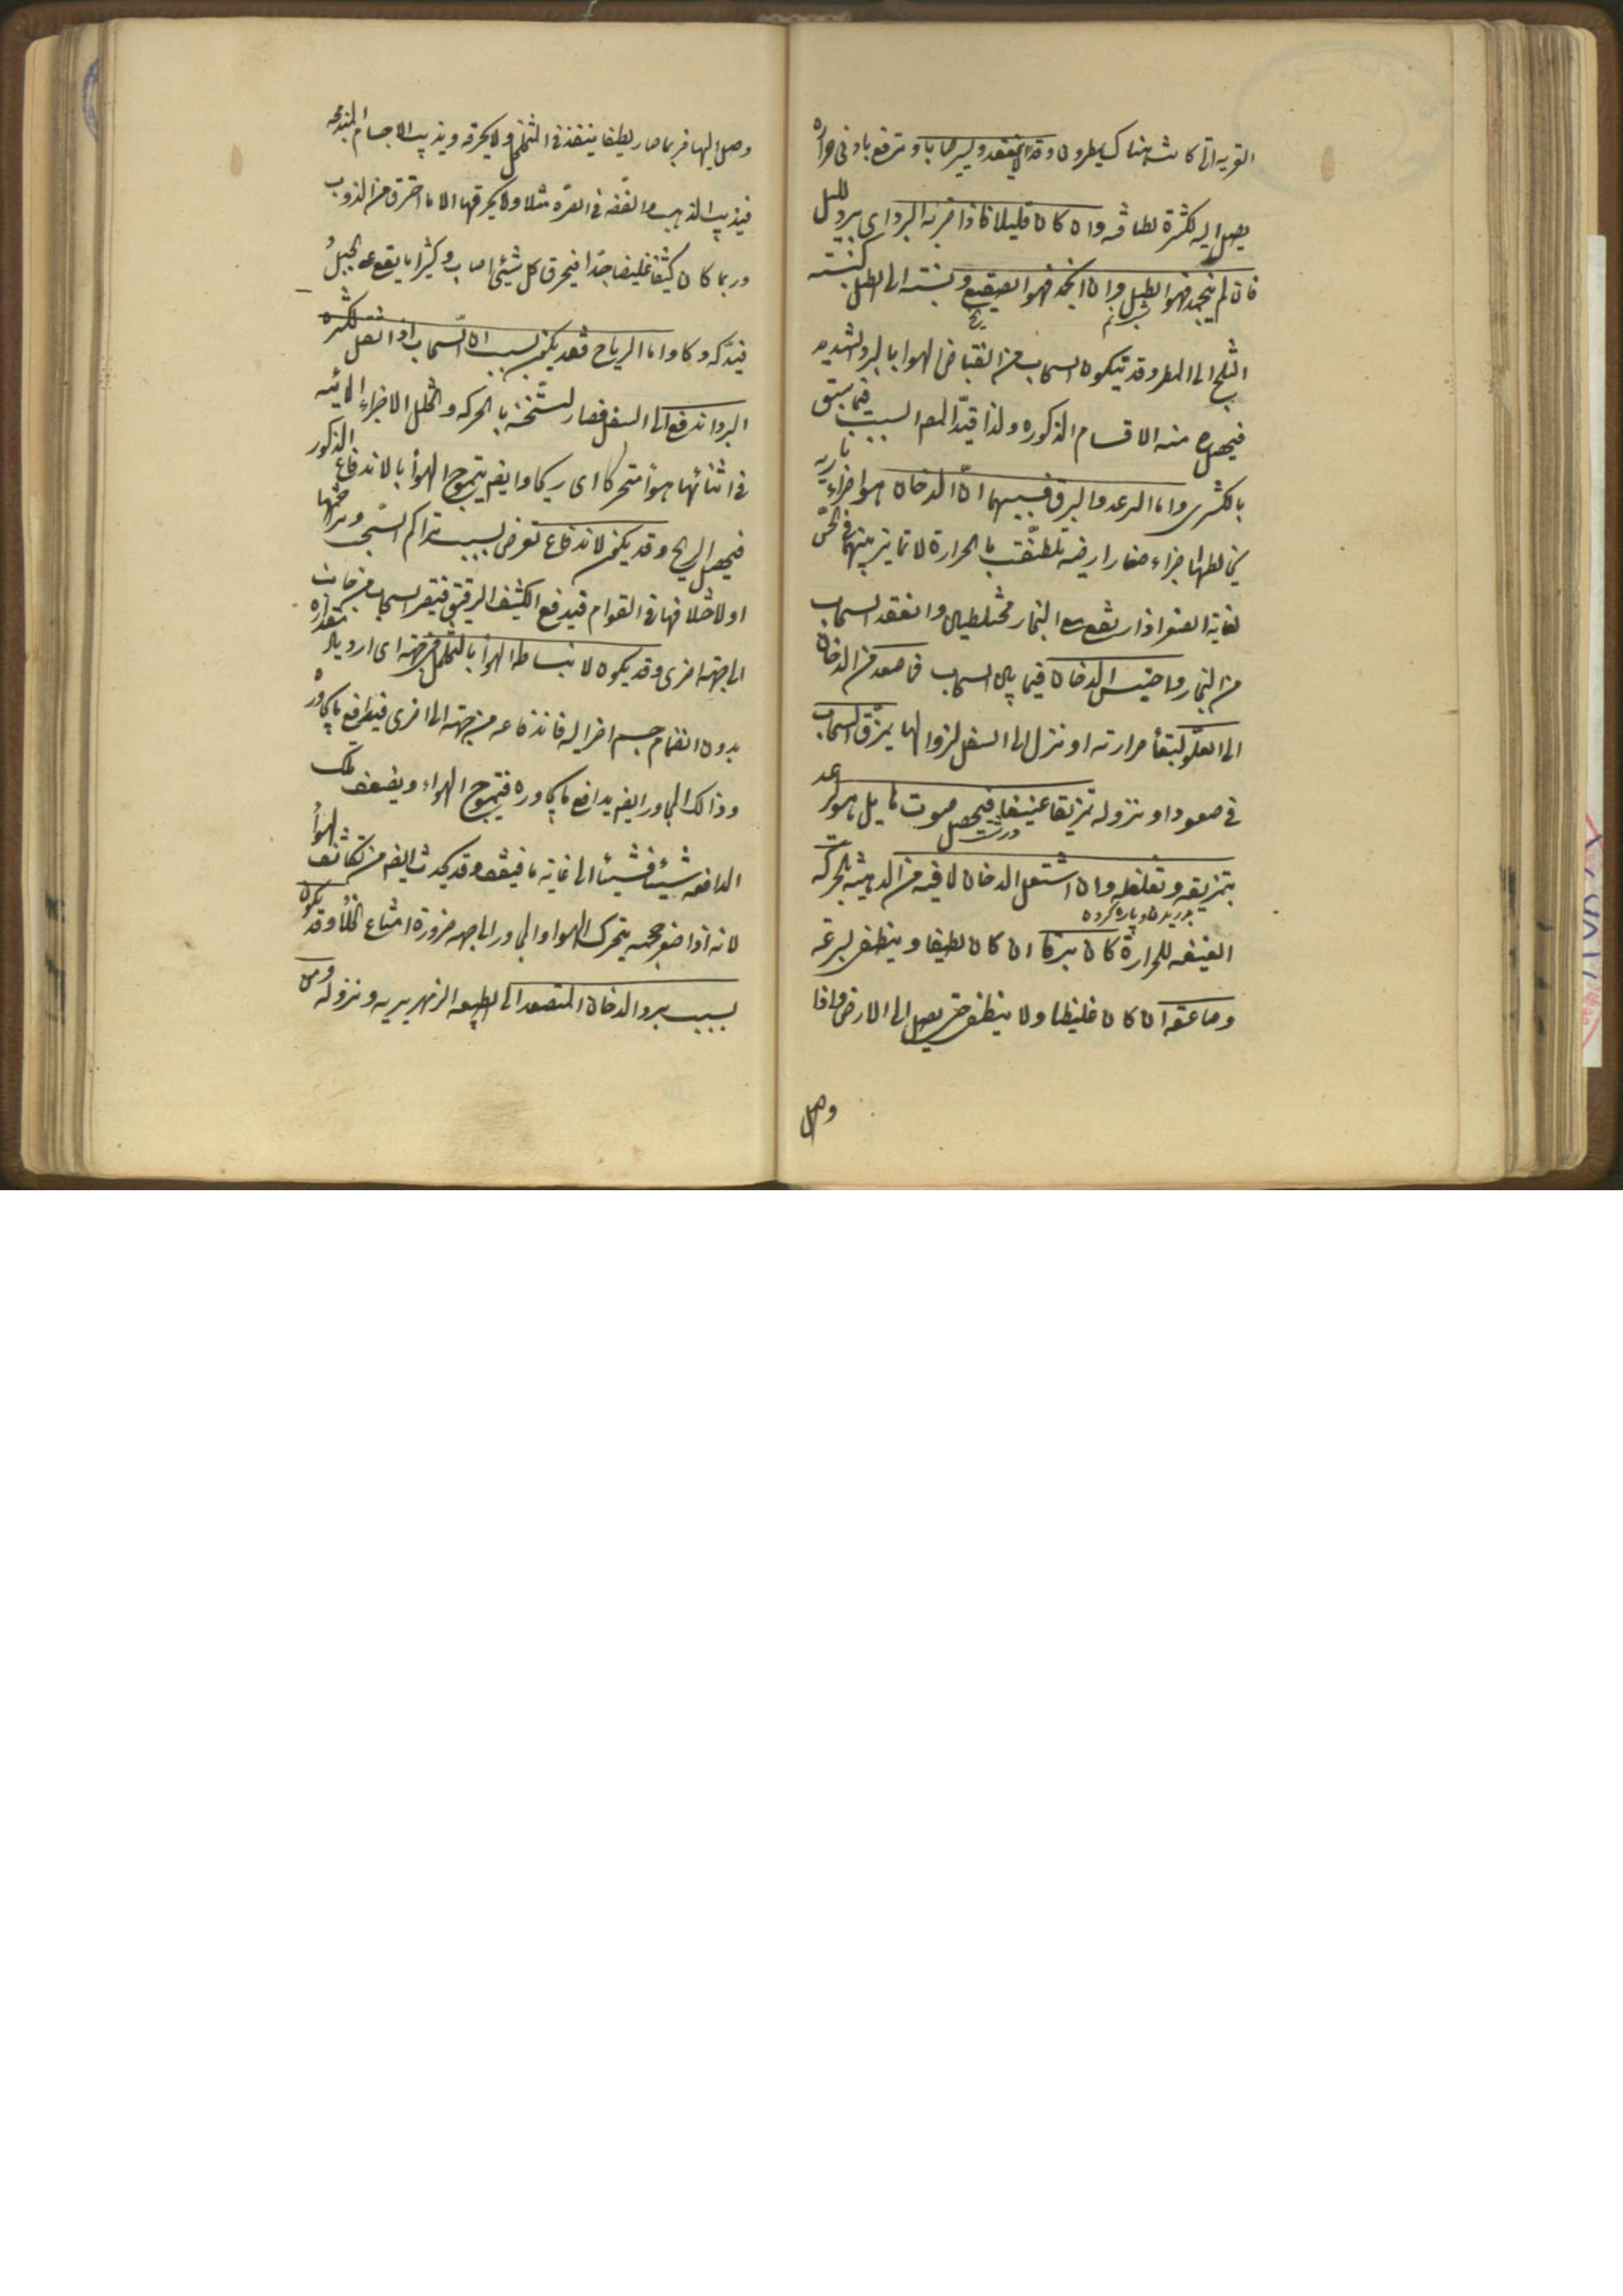 القرية التى كانت هناك يمطرون وقد لا ينعقد ويسير ضبابا وترفع بادنى حرارة
يصل اليه لكثرة لطافته وان كان قليلا فاذا ضربه البرد اى برد الليل
فان لم ينجمد فهو الطل وان انجمد فهو الصقيع ونسبته الى الطل كنسبة
شبنم
الثلج الى المطر وقد يتكون السحاب من انقباض الهوا بالبرد الشديد
فيحصل منه الاقسام المذكوره ولذا قيد المص السبب فيما سبق
بالكثرى واما الرعد والبرق فسببهما ان الدخان هو اجزاء نارية
يخالطها اجزاء صغار ارضيه تلطفت بالحرارة لا تمايز بينهما فى الحس
لغاية الصغر اذا ارتفع مع البخار مختلطين وانعقد السحاب
من البخار واحتبس الدخان فيما بين السحاب فما صعد من الدخان
الى العلو لبقأ حرارته او نزل الى السفل لزوالها يمزق السحاب
فى صعوده او نزوله تمزيقا عنيفا فيحصل صوت هايل هو الرعد
درشت
بتمزيقه وتغلغله وان اشتعل الدخان لما فيه من الدهنية بالحركة
دريدن و پاره كردن
العنيفه للحرارة كان برقا ان كان لطيفا وينطفى بسرعة
وصاعقه ان كان غليظا ولا ينطفى حتى يصل الى الارض واذا
وصل
وصل اليها فربما صار لطيفا ينفذ فى المتخلخل ولا يحرقه ويذيب الاجسام المندمجه
فيذيب الذهب والفضه فى الصره مثلا ولا يحرقها الا ما احترق من الذوب
وربما كان كثيفا غليظا جدا فيحرق كل شيئى اصاب وكثيرا ما يقع على الجبل
فيدكه دكا واما الرياح فقد يكون بسبب ان السحاب اذا ثقل لكثره
البرد اندفع الى السفل فصار لتسخنه بالحركه وتخلخل الاجزاء المائيه
فى اثنائها هوأ متحركا اى ريحا وايضا يتموج الهوأ بالاندفاع المذكور
فيحصل الريح وقد يكون لاندفاع تعرض بسبب تراكم السحب وتزاحمها
او لاختلافها فى القوام فيدفع الكثيف الرقيق فيصر السحاب من جانب
الى جهة اخرى وقد يكون لانبساط الهوأ بالتخلخل فى جهة اى ازدياد مقداره
بدون انضمام جسم اخر اليه فاندفاعه من جهة الى اخرى فيدافع ما يجاوره
وذالك المجاور ايضا يدافع ما يجاوره فيتموج الهواء ويضعف تلك
المدافعه شيئا فشيئا الى غاية ما فيقف وقد يحدث ايضا من تكاثف الهوأ
لانه اذا صغر حجمه يتحرك الهوا المجاور الى جهه ضرورة امتناع الخلأ وقد يكون
بسبب برد الدخان المتصعد الى الطبقه الزمهريريه ونزوله ومن